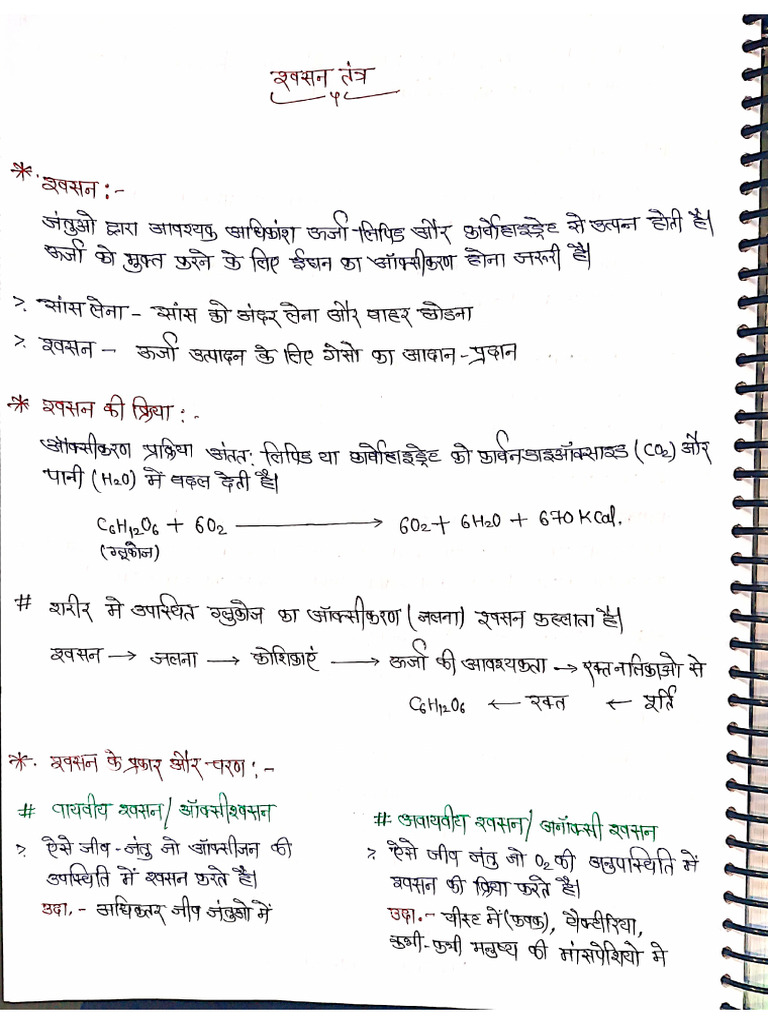 श्वसन तंत्र
* श्वसन :-
जंतुओ द्वारा आवश्यक अधिकांश ऊर्जा लिपिड और कार्बोहाइड्रेट से उत्पन्न होती है।
ऊर्जा को मुक्त करने के लिए ईंधन का ऑक्सीकरण होना जरूरी है।
>. सांस लेना - सांस को अंदर लेना और बाहर छोडना
>. श्वसन - ऊर्जा उत्पादन के लिए गैसो का आदान-प्रदान
* श्वसन की क्रिया :-
ऑक्सीकरण प्रक्रिया अंतत: लिपिड या कार्बोहाइड्रेट को कार्बनडाइऑक्साइड (CO₂) और
पानी (H₂O) में बदल देती है।
C₆H₁₂O₆ + 6O₂ ⟶ 6O₂ + 6H₂O + 670 KCal.
(ग्लूकोज)
# शरीर मे उपस्थित ग्लुकोज का ऑक्सीकरण (जलना) श्वसन कहलाता है।
श्वसन → जलना → कोशिकाएं → ऊर्जा की आवश्यकता → रक्तनलिकाओ से
C₆H₁₂O₆ ← रक्त ← पूर्ति
*. श्वसन के प्रकार और चरण :-
# वायवीय श्वसन/ ऑक्सीश्वसन
>. ऐसे जीव-जंतु जो ऑक्सीजन की
उपस्थिति में श्वसन करते है।
उदा. - अधिकतर जीव जंतुओ में
# अवायवीय श्वसन/ अनॉक्सी श्वसन
>. ऐसे जीव जंतु जो O₂ की अनुपस्थिति में
श्वसन की क्रिया करते है।
उदा. - यीस्ट में (कवक), बैक्टीरिया,
कभी-कभी मनुष्य की मांसपेशियो मे